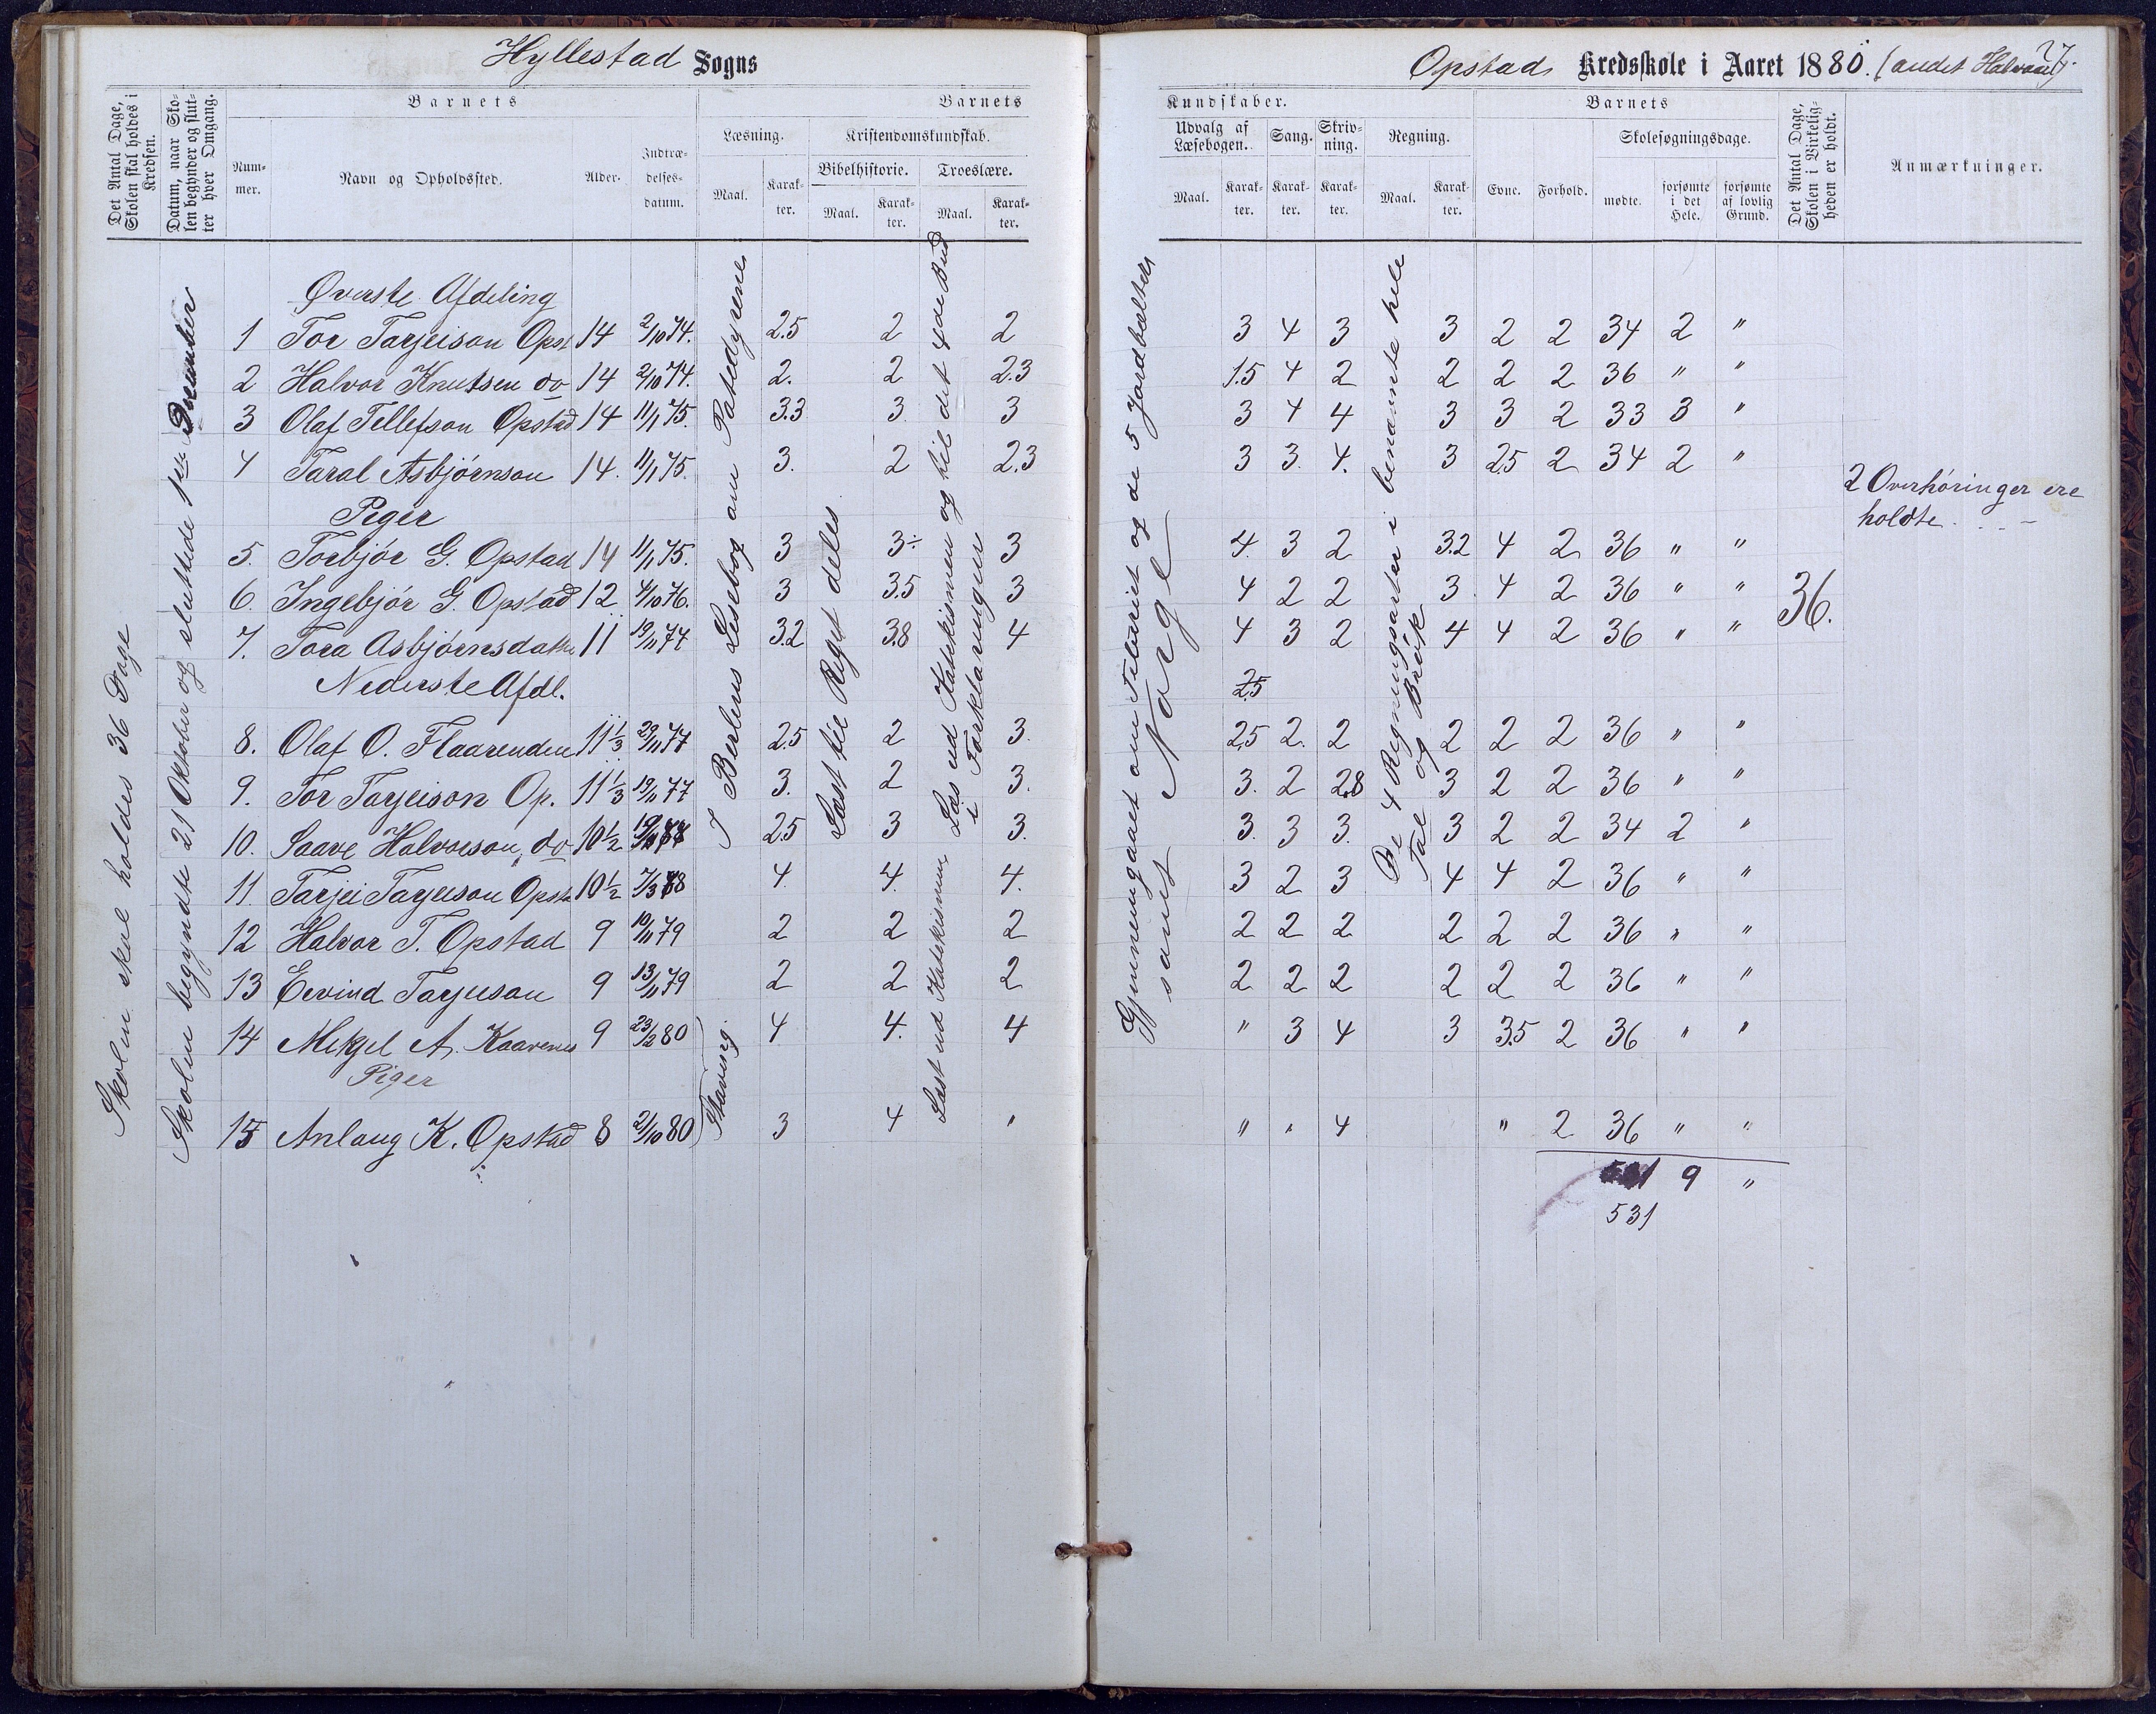 Hyllestad Sogns
Opstad Kredsskole i Aaret 1880. (andet Halvaar).
27
Det Antal Dage, Skolen skal holdes i Kredsen.
Datum, naar Skolen begynder og slutter hver Omgang.
Barnets
Barnets
Nummer.
Navn og Opholdssted.
Alder.
Indtrædelsesdatum.
Læsning.
Kristendomskundskab.
Bibelhistorie.
Troeslære.
Maal.
Karakter.
Maal.
Karakter.
Maal.
Karakter.
Kundskaber.
Barnets
Udvalg af Læsebogen.
Sang.
Skrivning.
Regning.
Skolesøgningsdage.
Maal.
Karakter.
Karakter.
Karakter.
Maal.
Karakter.
Evne.
Forhold.
mødte.
forsømte i det Hele.
forsømte af lovlig Grund.
Det Antal Dage, Skolen i Virkeligheden er holdt.
Anmærkninger.
Skolen skal holdes 36 Dage
Skolen begyndte 21 Oktober og sluttede 1ste December
I Berlins Lesebog om Patedyrene
Læst til Riget deles
Læs ud Katekismen og til det 4de Bud
i Forklaringen
Læst ud Katekismen
(Staving)
Gjennemgaaet om Teltæriet og de 5 Jordbælter
samt Norge
De 4 Regningsarter i benævnte hele
Tal og Brøk
Øverste Afdeling
1 Tor Tarjeison Opst 14 2/10 74. 2.5 2 2 3 4 3 3 2 2 34 2 "
2 Halvor Knutsen do 14 2/10 74. 2. 2 2.3 1.5 4 2 2 2 2 36 " "
3 Olaf Tellefson Opstad 14 11/1 75. 3.3 3 3 3 4 4 3 3 2 33 3 "
4 Taral Asbjørnson 14. 11/1 75. 3. 2 2.3 3 3. 4. 3 2.5 2 34 2 "
2 Overhøringer ere
holdte
Piger
5. Torbjør G. Opstad 14 11/1 75. 3 3÷ 3 4. 3 2 3.2 4 2 36 " "
6. Ingebjør G. Opstad 12 4/10 76. 3 3.5 3 4 2 2 3 4 2 36 " " 36.
7. Tora Asbjørnsdatter 11 19/11 77 3.2 3.8 4 4 3 2 4 4 2 36 " "
Nederste Afdl.
2.5
8. Olaf O. Flaarenden 11 1/3 29/11 77 2.5 2 3. 2.5 2. 2 2 2 2 36 " "
9. Tor Tarjeison Op. 11 1/3 19/11 77 3. 2 3. 3. 2 2.8 3 2 2 36 " "
10. Saave Halvorson, do 10 1/2 2.5 3 3. 3. 3 3. 3 2 2 34 2 "
11 Tarjei Tarjeison Opst 10 1/2 7/3 78 4. 4. 4. 3 2 3 4 4 2 36 " "
12 Halvor T. Opstad 9 10/11 79 2 2 2 2 2 2 2 2 2 36 " "
13 Eivind Tarjeison 9 13/11 79 2 2 2 2 2 2 2 2 2 36 " "
14 Mikjel A. Kaavenes 9 23/2 80 4 4. 4 " 3 4 3 3.5 2 36 " "
Piger
15 Anlaug K. Opstad 8 21/10 80 3 4 " " " 4 " 2 36 " "
9 "
531